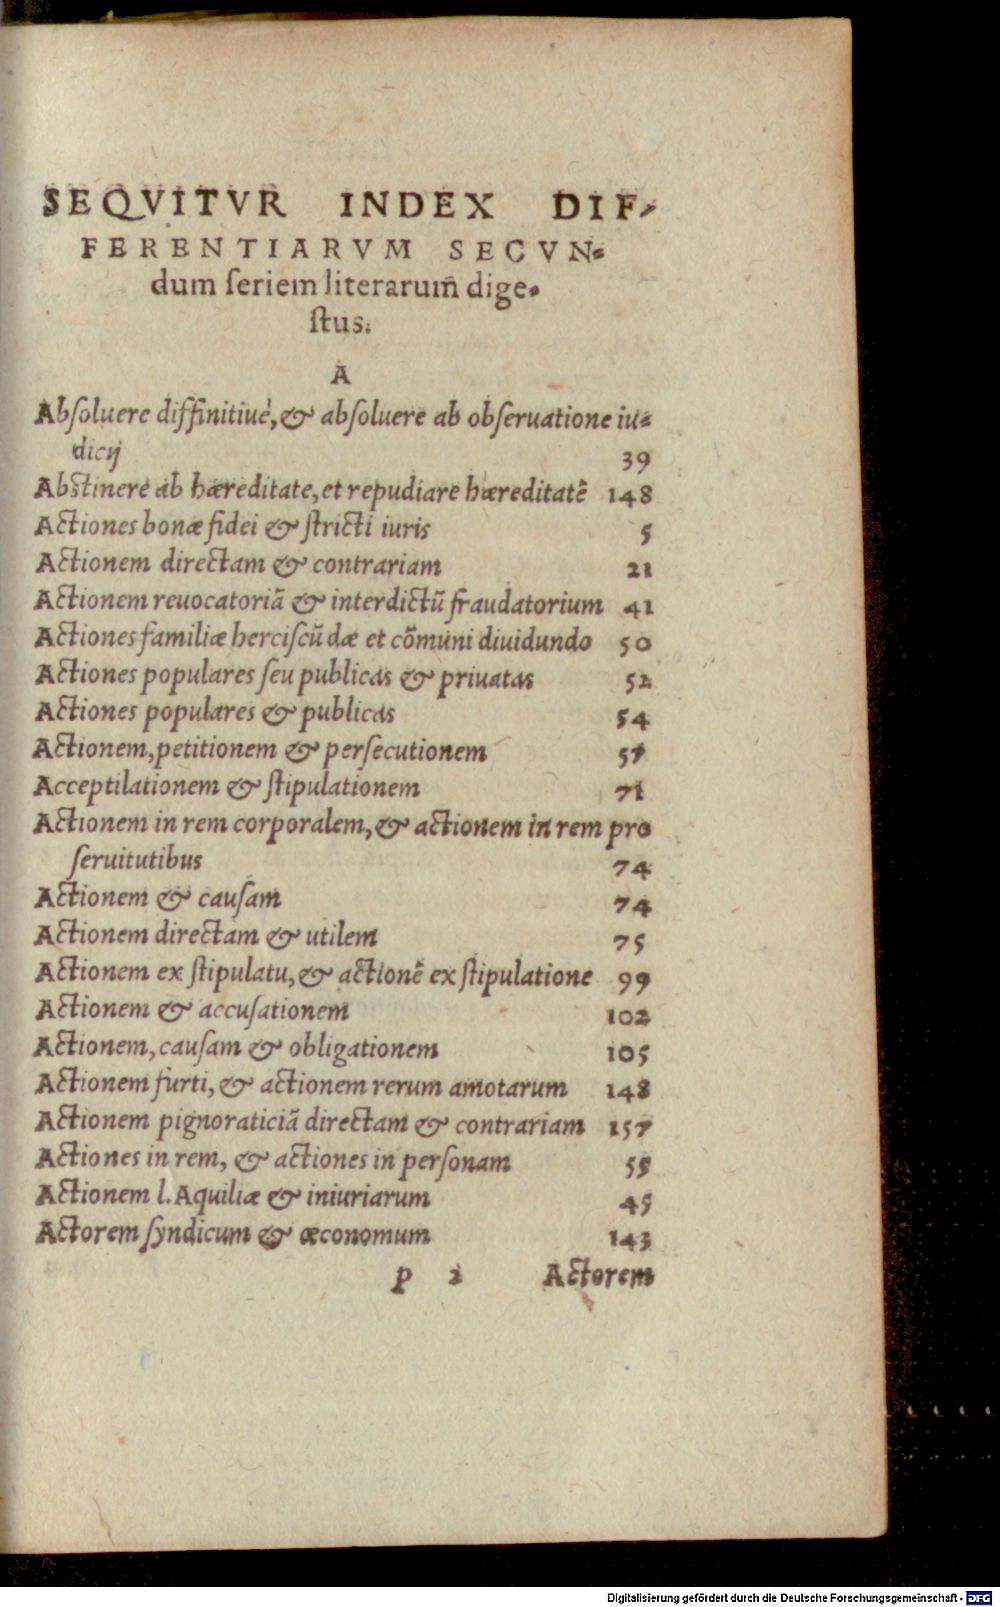 SEQVITVR INDEX DIF-
FERENTIARVM SECVN-
dum ſeriem literarum̃ dige-
ſtus.
A
Abſoluere diffinitiuè, & abſoluere ab obſeruatione iu-
dicij 39
Abstinere ab hæreditate, et repudiare hæreditatẽ 148
Actiones bonæ fidei & ſtricti iuris 5
Actionem directam & contrariam 21
Actionem reuocatoriã & interdictũ fraudatorium 41
Actiones familiæ herciſcũdæ et cõmuni diuidundo 50
Actiones populares ſeu publicas & priuatas 52
Actiones populares & publicas 54
Actionem, petitionem & perſecutionem 57
Acceptilationem & ſtipulationem 71
Actionem in rem corporalem, & actionem in rem pro
ſeruitutibus 74
Actionem & cauſam 74
Actionem directam & utilem 75
Actionem ex ſtipulatu, & actionẽ ex ſtipulatione 99
Actionem & accuſationem 102
Actionem, cauſam & obligationem 105
Actionem furti, & actionem rerum amotarum 148
Actionem pignoraticiã directam & contrariam 157
Actiones in rem, & actiones in perſonam 55
Actionem l. Aquiliæ & iniuriarum 45
Actorem ſyndicum & œconomum 143
p 2 Actorem
Digitalisierung gefördert durch die Deutsche Forschungsgemeinschaft - DFG